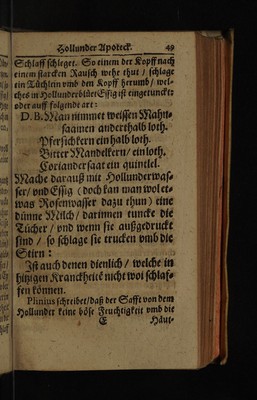 Hollunder Apoteck. 49
Schlaff schleget. So einem der Kopff nach
einem starcken Rausch wehe thut / schlage
ein Tüchlein vmb den Kopff herumb / wel-
ches in Hollunderblüt Essig ist eingetunckt:
oder auff folgende art:
D. B. Man nimmet weissen Mahn-
saamen anderthalb loth.
Pfersichkern ein halb loth.
Bitter Mandelkern / ein loth,
Coriander saat ein quintel.
Mache darauß mit Hollunderwas-
ser / vnd Essig (doch kan man wol et-
was Rosenwasser dazu thun) eine
dünne Milch / darinnen tuncke die
Tücher / vnd wenn sie außgedruckt
sind / so schlage sie trucken vmb die
Stirn:
Ist auch denen dienlich / welche in
hitzigen Kranckheiten nicht wol schlaf-
fen können.
Plinius schreibet / daß der Safft von dem
Hollunder keine böse Feuchtigkeit vmb die
E Häut-